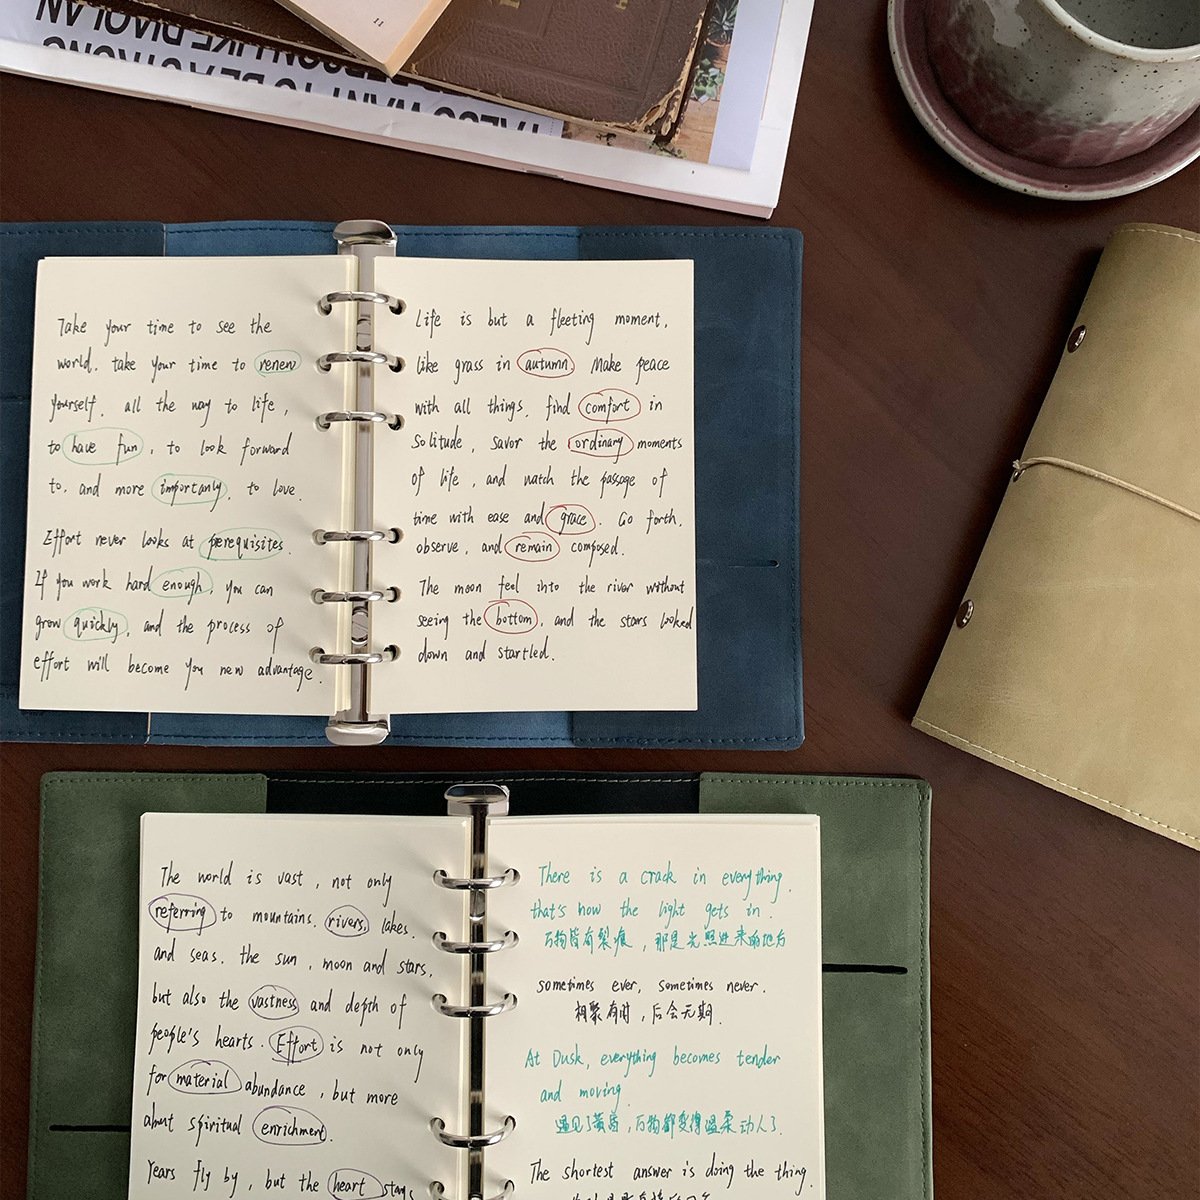 11
I ALSO WANT TO BE A STRONG
PERSON LIKE DINGLAN
Take your time to see the
world. take your time to renew
yourself. all the way to life,
to have fun, to look forward
to, and more importanly, to love.
Effort never looks at prerequisites.
If you work hard enough, you can
grow quickly, and the process of
effort will become you new advantage.
Life is but a fleeting moment,
like grass in autumn. Make peace
with all things, find comfort in
Solitude, savor the ordinary moments
of life, and watch the passage of
time with ease and grace. Go forth,
observe, and remain composed.
The moon feel into the river without
seeing the bottom, and the stars looked
down and startled.
The world is vast, not only
referring to mountains, rivers, lakes.
and seas. the sun, moon and stars,
but also the vastness and depth of
people's hearts. Effort is not only
for material abundance, but more
about spiritual enrichment.
Years fly by, but the heart stays
There is a crack in everything.
that's how the light gets in.
万物皆有裂痕，那是光照进来的地方
sometimes ever, sometimes never.
相聚有时，后会无期.
At Dusk, everything becomes tender
and moving.
遇见了黄昏，万物都变得温柔动人了.
The shortest answer is doing the thing.